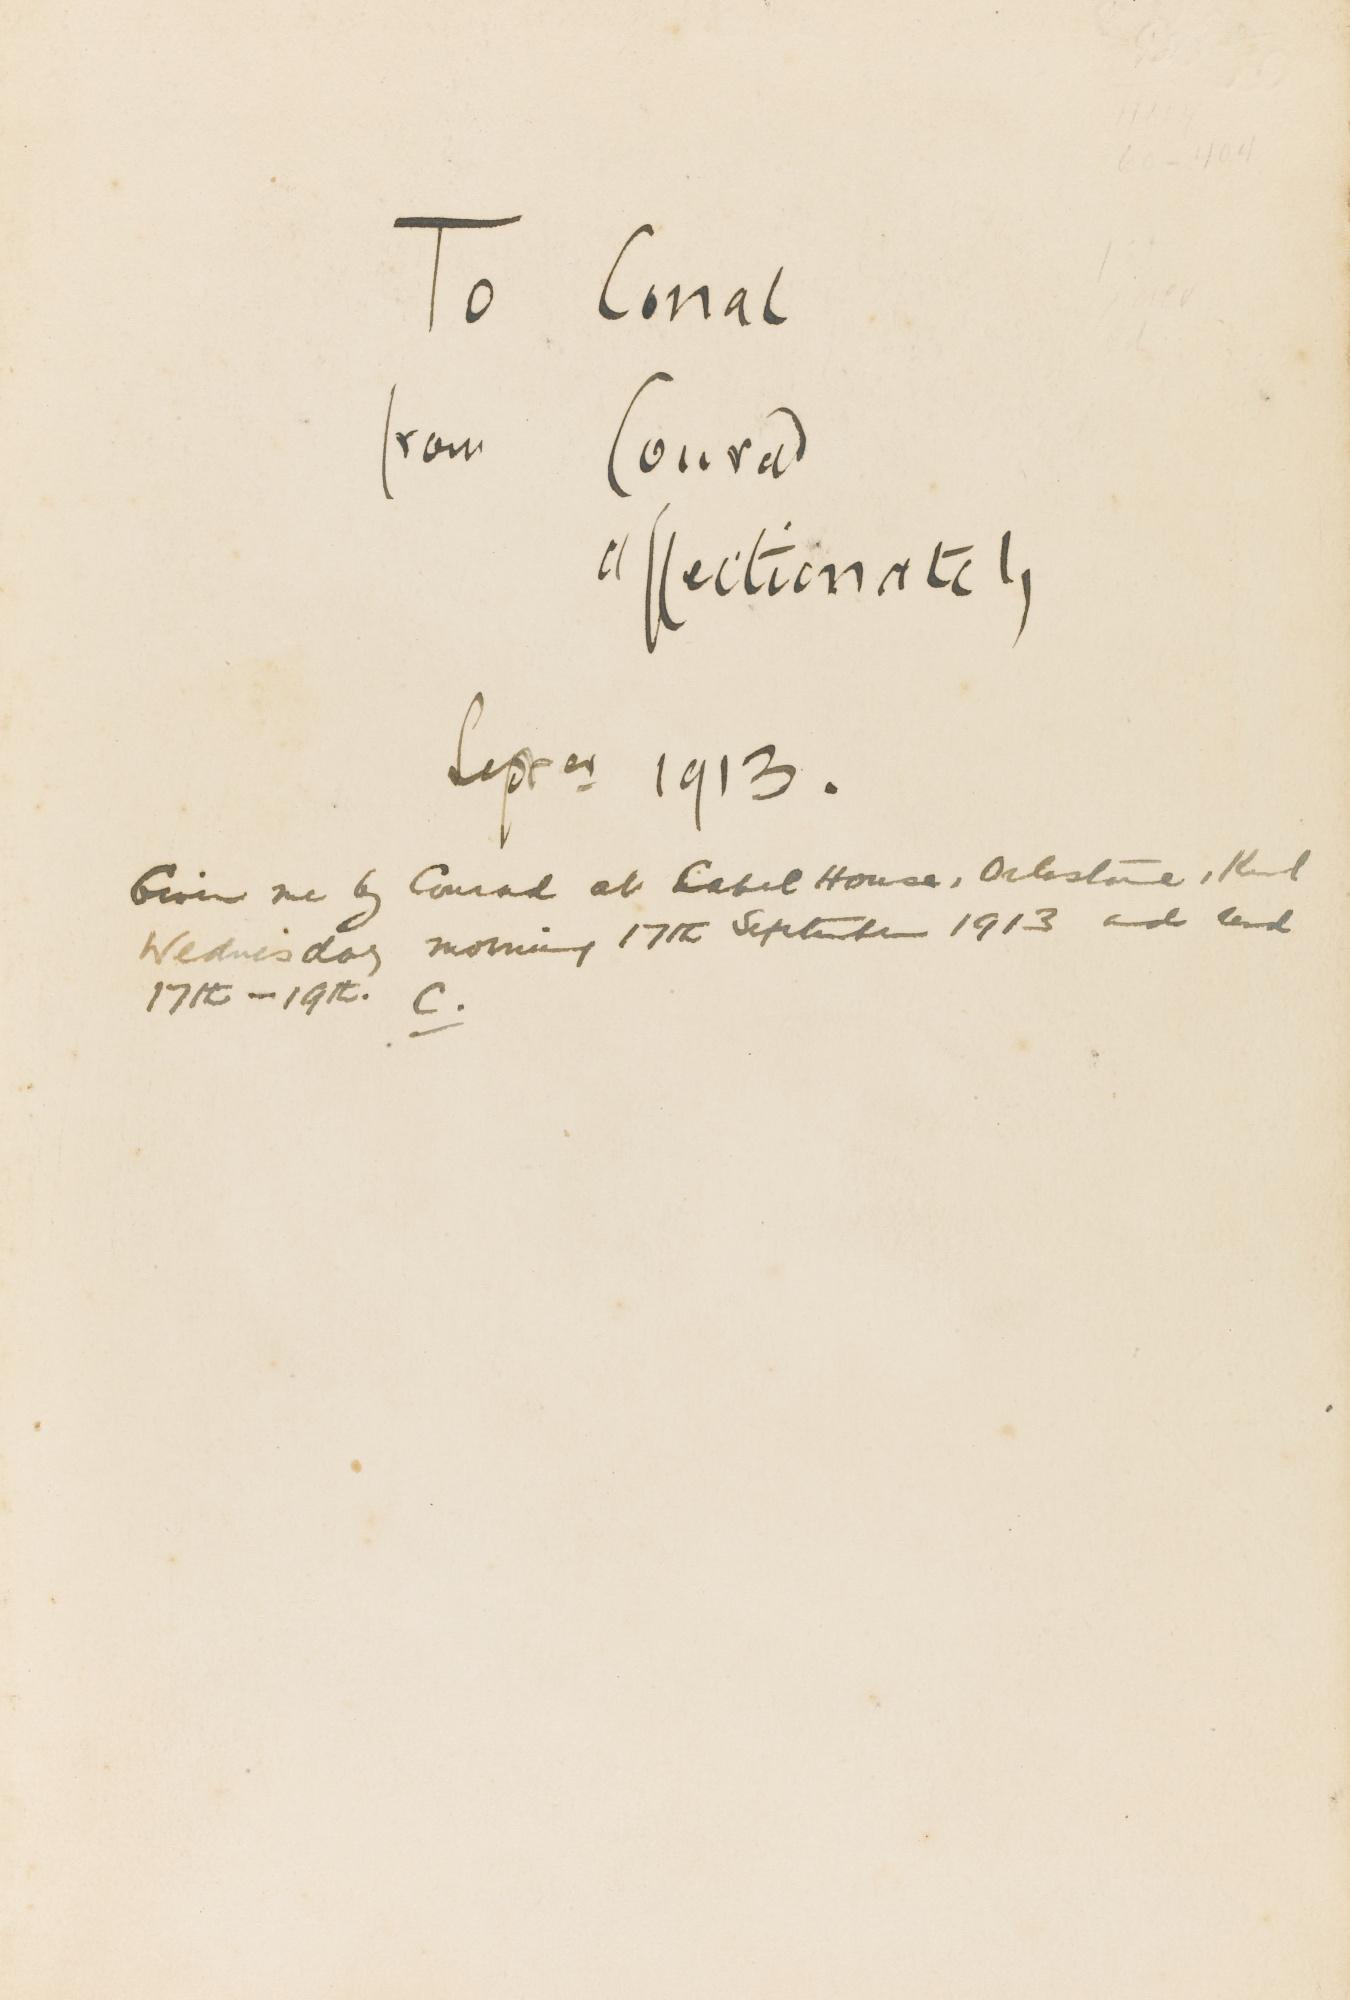 To Conal
from Conrad
affectionately
Septer 1913.
Given me by Conrad at Capel House, Orlestone, Kent
Wednesday morning 17th September 1913 and read
17th – 19th. C.
60-404